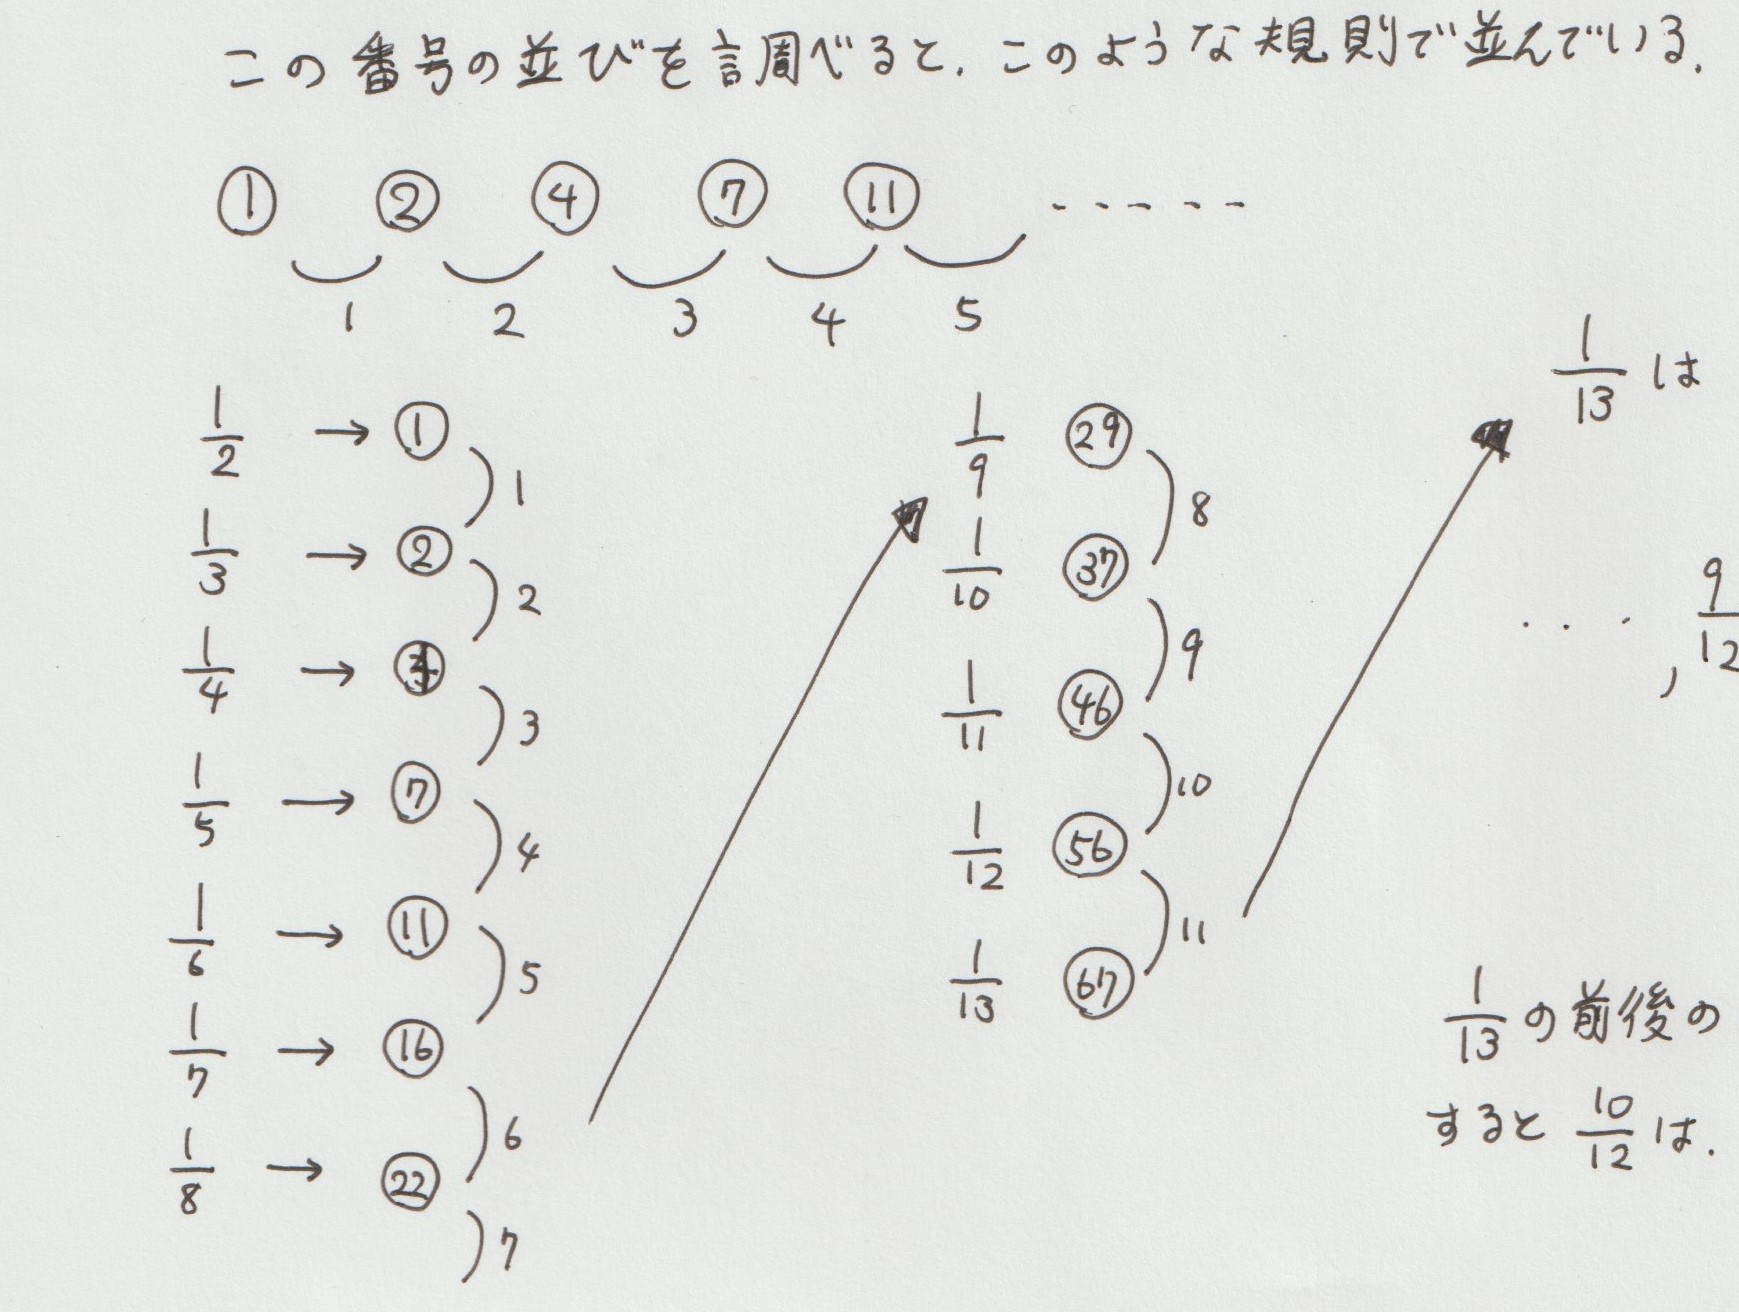 この番号の並びを調べると、このような規則で並んでいる.
① ② ④ ⑦ ⑪ -----
1 2 3 4 5
1/2 → ①
1
1/3 → ②
2
1/4 →
3
1/5 → ⑦
4
1/6 → ⑪
5
1/7 → ⑯
6
1/8 → ㉒
7
1/9 ㉙
8
1/10 ㊲
9
1/11 ㊻
10
1/12 56
11
1/13 67
1/13 は
. . . , 9/12
1/13 の前後の
すると 10/12 は.